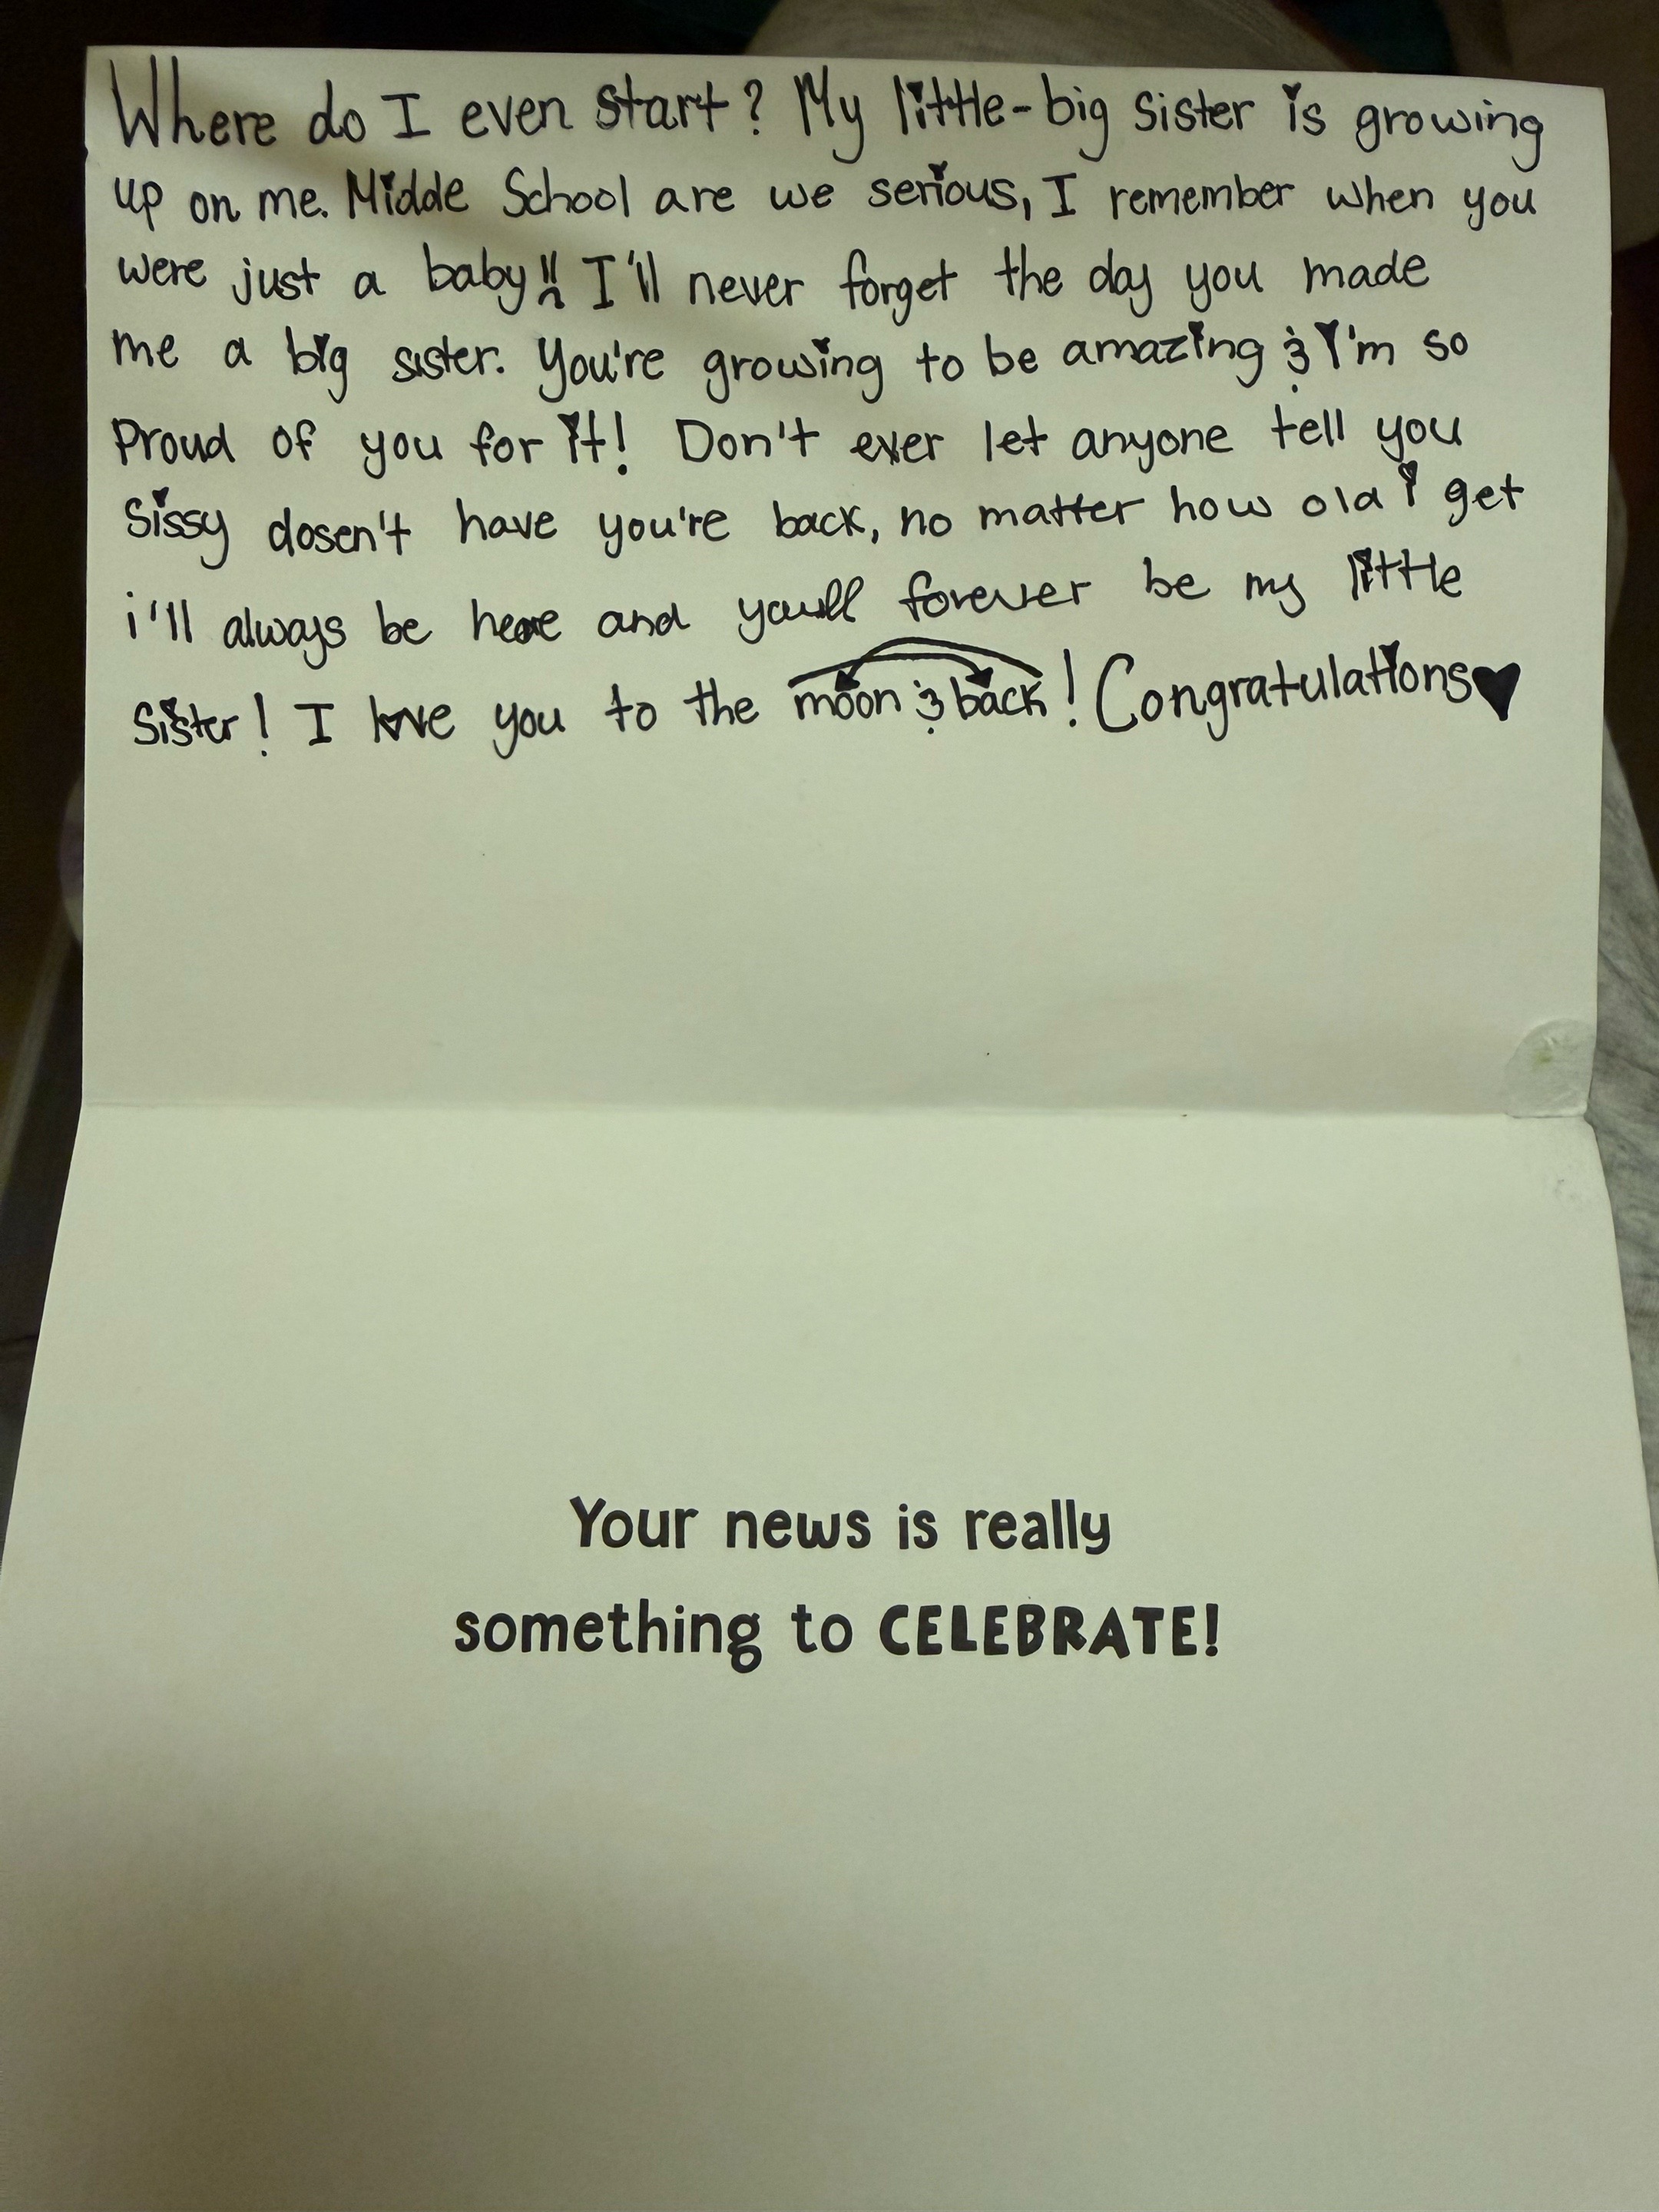 Where do I even start? My little-big sister is growing
up on me. Midde School are we serious, I remember when you
were just a baby!! I'll never forget the day you made
me a big sister. You're growing to be amazing & I'm so
Proud of you for it! Don't ever let anyone tell you
Sissy dosen't have you're back, no matter how old I get
i'll always be here and you'll forever be my little
Sister! I love you to the moon & back! Congratulations♥
Your news is really
something to CELEBRATE!